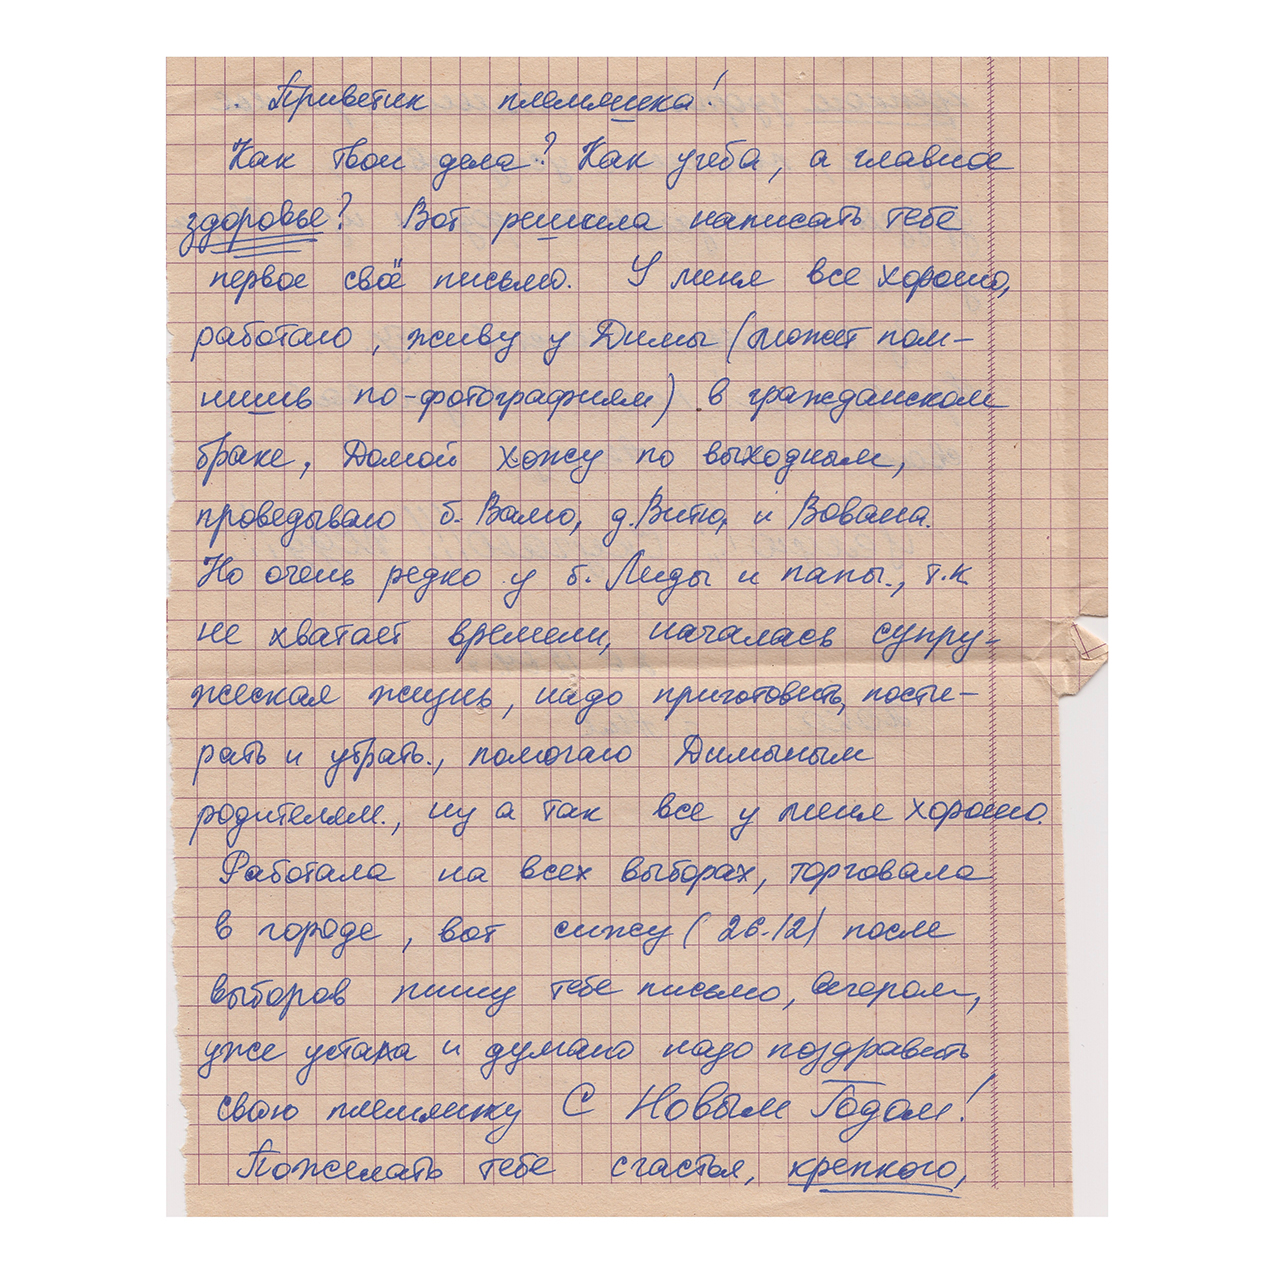 Приветик племяшка!
Как твои дела? Как учеба, а главное
здоровье? Вот решила написать тебе
первое своё письмо. У меня все хорошо,
работаю, живу у Димы (может пом-
нишь по-фотографиям) в гражданском
браке, Домой хожу по выходным,
проведываю б. Валю, д. Витю, и Вована.
Но очень редко у б. Лиды и папы., т.к
не хватает времени, началась супру-
жеская жизнь, надо приготовить, пости-
рать и убрать., помогаю Диминым
родителям., ну а так все у меня хорошо.
Работала на всех выборах, торговала
в городе, вот сижу (26.12) после
выборов пишу тебе письмо, вечером,
уже устала и думаю надо поздравить
свою племяшку С Новым Годом!
Пожелать тебе счастья, крепкого,